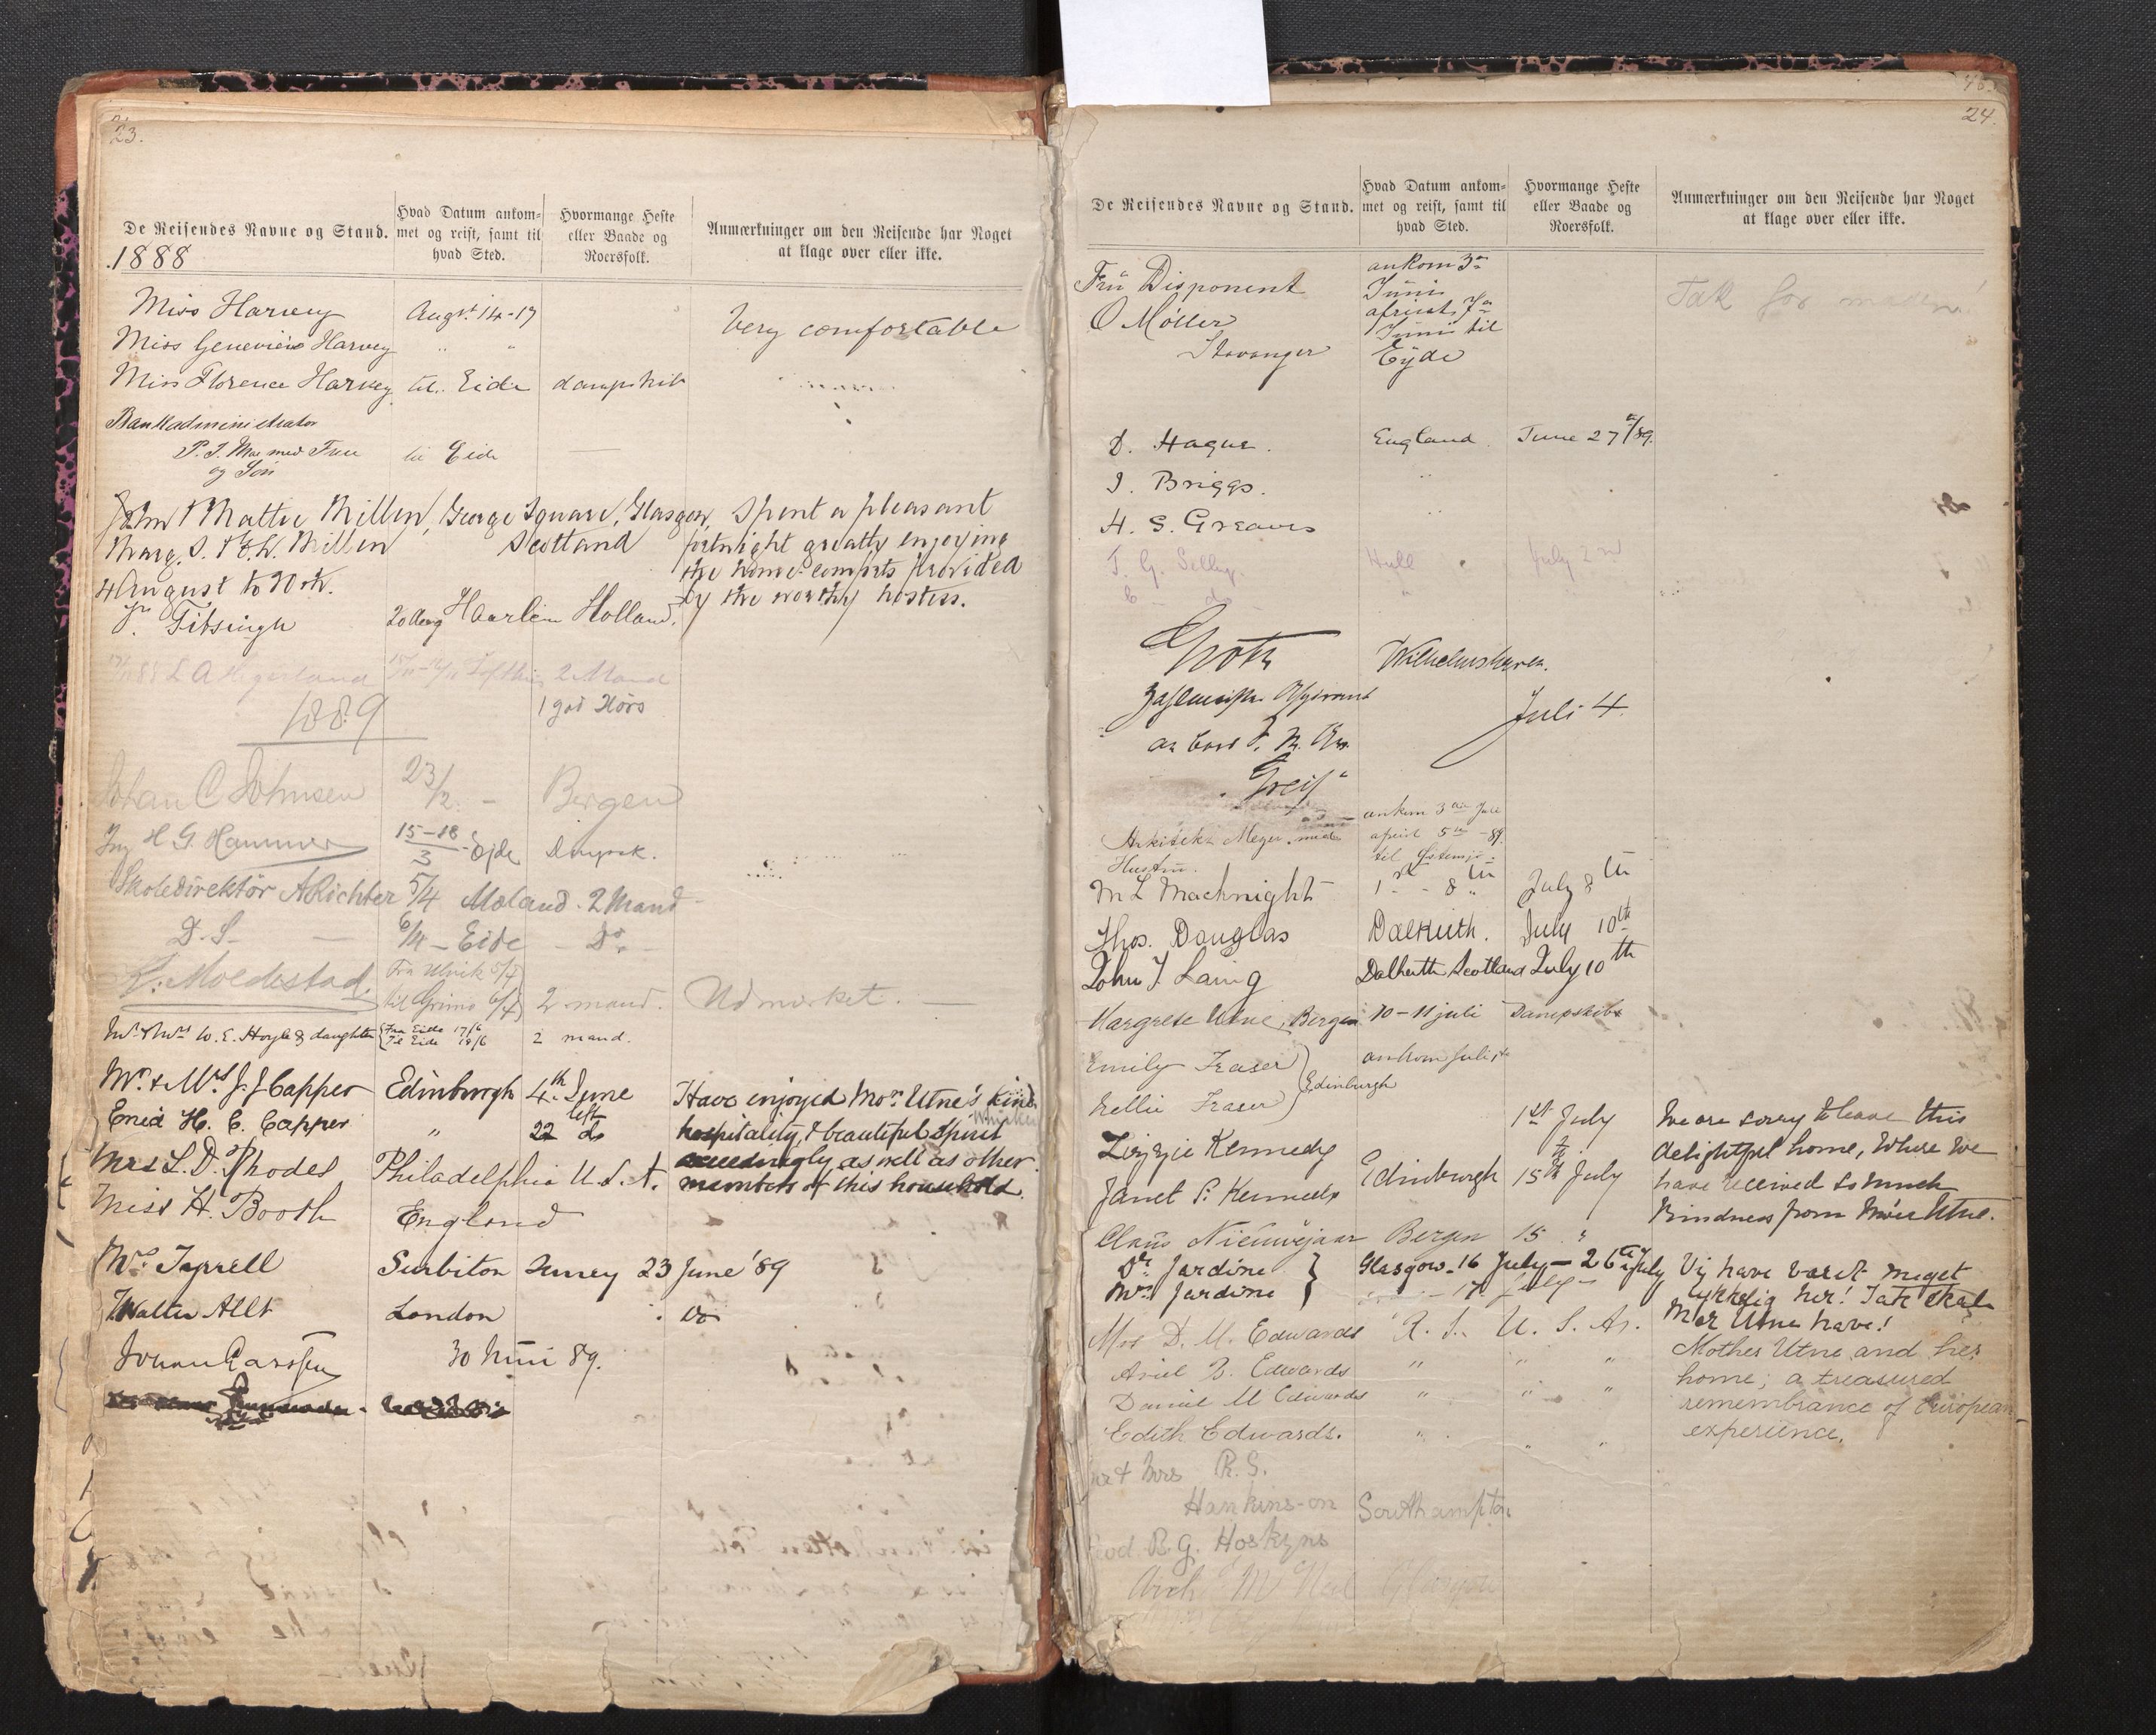 23.
De Reisendes Navne og Stand.
Hvad Datum ankom-
met og reist, samt til
hvad Sted.
Hvormange Heste
eller Baade og
Roersfolk.
Anmærkninger om den Reisende har Noget
at klage over eller ikke.
1888
Miss Harvey Augst. 14-17 Very comfortable
Miss Genevieve Harvey " "
Miss Florence Harvey til. Eide dampskib
Bankadministrator
P. J. Moe med Frue til Eide
og Søn
John & Mattie Millen, George Square, Glasgow, Spent a pleasant
Marg. S. & E. L. Millen Scotland fortnight greatly enjoying
the home-comforts provided
4 August to 20th. by the worthy hostess.
Titsingh Haarlem Holland.
2 Mand
1889 1 god Hørs
Johan C Johnsen 23/2 - Bergen
Ing H G. Hammer 15-18/3 Ejde Dampsk.
Skoledirektör A Richter 5/4 Maland. 2 Mand
D. S - 6/4 - Eide - Do -
K. Moldestad. Fra Ulvik 5/4
til Grimo 6/4 2 mand. Udmerket.
Mr & Mrs W. E. Hoyle & daughter Fra Eide 17/6
Til Eide 18/6 2 mand.
Mr. & Mrs J. J Capper Edinburgh 4th June Have enjoyed Mor Utne's kind
left
Enid H. C. Capper " 22 do hospitality, & beautiful spirit
exceedingly as well as other
Mrs L. D. Rhodes Philadelphia U. S. A. members of this household.
Miss H. Booth England
Mrs Tyrrell Surbiton Surrey 23 June '89
Walter Allt London Do
30 Juni 89.
24.
De Reisendes Navne og Stand.
Hvad Datum ankom-
met og reist, samt til
hvad Sted.
Hvormange Heste
eller Baade og
Roersfolk.
Anmærkninger om den Reisende har Noget
at klage over eller ikke.
Frü Disponent ankom 3
Juni Tak for maden!
O Møller afreist 7
Juni til
Stavanger Eyde
D. Hague. England. June 27th/89.
J. Briggs. "
H. S. Greaves "
T. G. Selby. Hull July 2nd
do
Wilhelmshaven.
Juli 4
"Greif"
ankom 3 Juli
Arkitekt Meyer med afreist 5 -89.
Hustru. til
M L Macknight 1st - 8th July 8th
Thos. Douglas Dalkeith. July 10th
John J. Laing Dalkeith Scotland July 10th
Margrete Utne, Bergen 10-11 juli Dampskib
Emily Fraser ankom Juli
Edinburgh
Nellie Fraser
1st July We are sorry to leave this
Lizzie Kennedy to delightful home, Where we
Janet P. Kennedy Edinburgh 15th July have received so much
kindness from Moer Utne.
Claus Nieuwejaar Bergen 15 "
Dr Jardine Glasgow. 16 July - 26th July Vi have været meget
Mrs Jardine - 17 July - lykkelig her! Tak skal
Mor Utne have!
Mrs D. M. Edwards R. I. U. S. A. Mother Utne and her
Ariel B. Edwards " " " home; a treasured
Daniel M Edwards " " " remembrance of European
Edith Edwards. " " " experience.
Mr & Mrs R. S.
Hankinson Southampton
Revd B. G. Hoskyns
Arch McNeil Glasgow